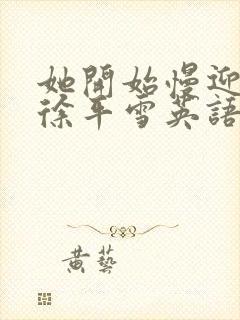 她開始慢迎
徐平雪英語
黃藝